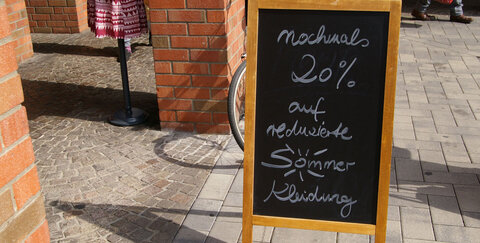 nochmals
20%
auf
reduzierte
Sommer
Kleidung